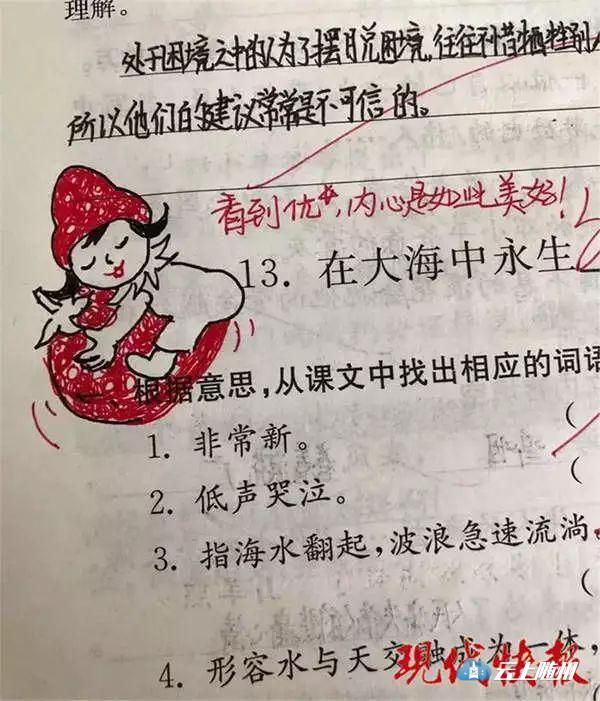 理解。
处于困境之中的人为了摆脱困境,往往不惜牺牲别人
所以他们的建议常常是不可信的。
看到优*,内心是如此美好!
13. 在大海中永生
根据意思,从课文中找出相应的词语
(
1. 非常新。
(
2. 低声哭泣。
3. 指海水翻起,波浪急速流淌。
(
4. 形容水与天交融成为一体,
现代快报
云上随州